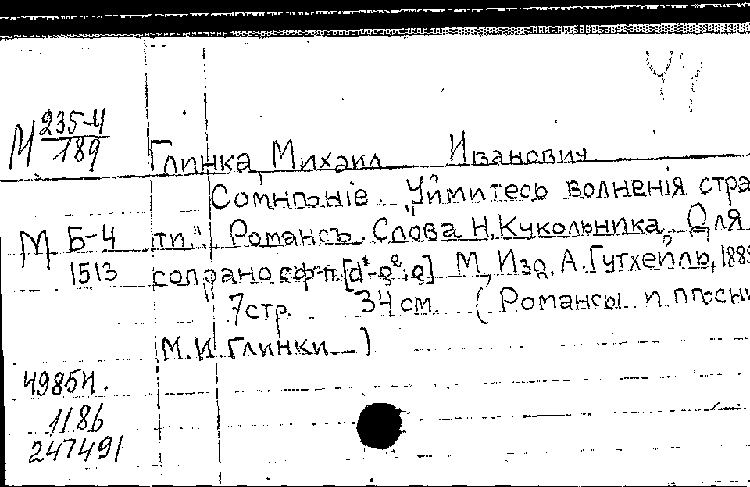 М 235-4
189
Глинка, Михаил Иванович
Сомнѣніе. "Уймитесь волненія стра
М Б-4
1513
сти". Романсъ. Слова Н. Кукольника. Для
сопрано с ф-п. [d¹-g²; g] М, Изд. А. Гутхейль, 188
7 стр. 34 см. (Романсы и пѣсн
М.И. Глинки )
4985н.
1186
247491